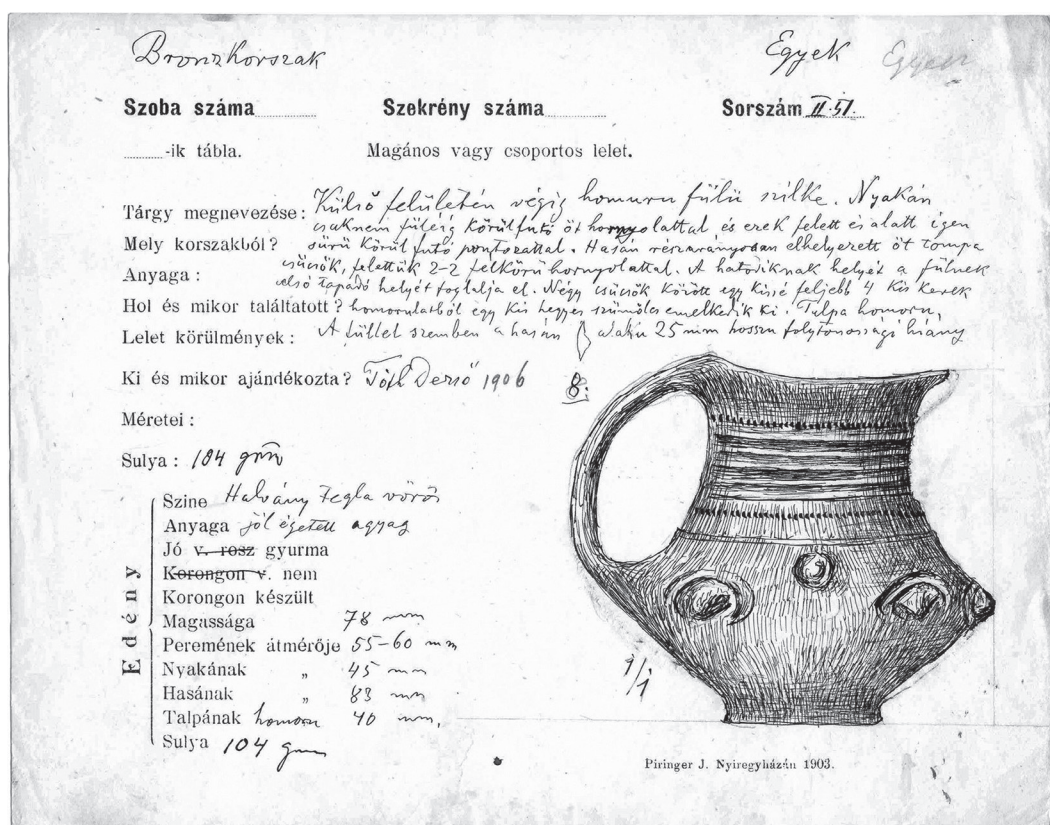 Bronzkorszak
Egyek
Szoba száma
Szekrény száma
Sorszám II.51.
-ik tábla.
Magános vagy csoportos lelet.
Tárgy megnevezése: Külső felületén végig homuru fülü szilke. Nyakán
csaknem füléig körülfutó öt hornyolattal és ezek felett és alatt igen
Mely korszakból? sürü körül futó pontozattal. Hasán részarányosan elhelyezett öt tompa
csücsök, felettük 2-2 félkörü hornyolattal. A hatodiknak helyét a fülnek
Anyaga: alsó tapadó helyét foglalja el. Négy csücsök között egy kissé feljebb 4 kis kerek
Hol és mikor találtatott? homorulatból egy kis hegyes szümölcs emelkedik ki. Talpa homoru,
Lelet körülmények: A füllel szemben a hasán alaku 25 mm hosszu folytonossági hiány
Ki és mikor ajándékozta? Tóth Dezső 1906
8.
Méretei:
Sulya: 104 grm
Edény
Szine Halvány tegla vörös
Anyaga jól égetett agyag
Jó v. rosz gyurma
Korongon v. nem
Korongon készült
Magassága 78 mm
Peremének átmérője 55-60 mm
Nyakának „ 45 mm
Hasának „ 83 mm
Talpának homoru 40 mm,
Sulya 104 grm
1/1
Piringer J. Nyiregyházán 1903.